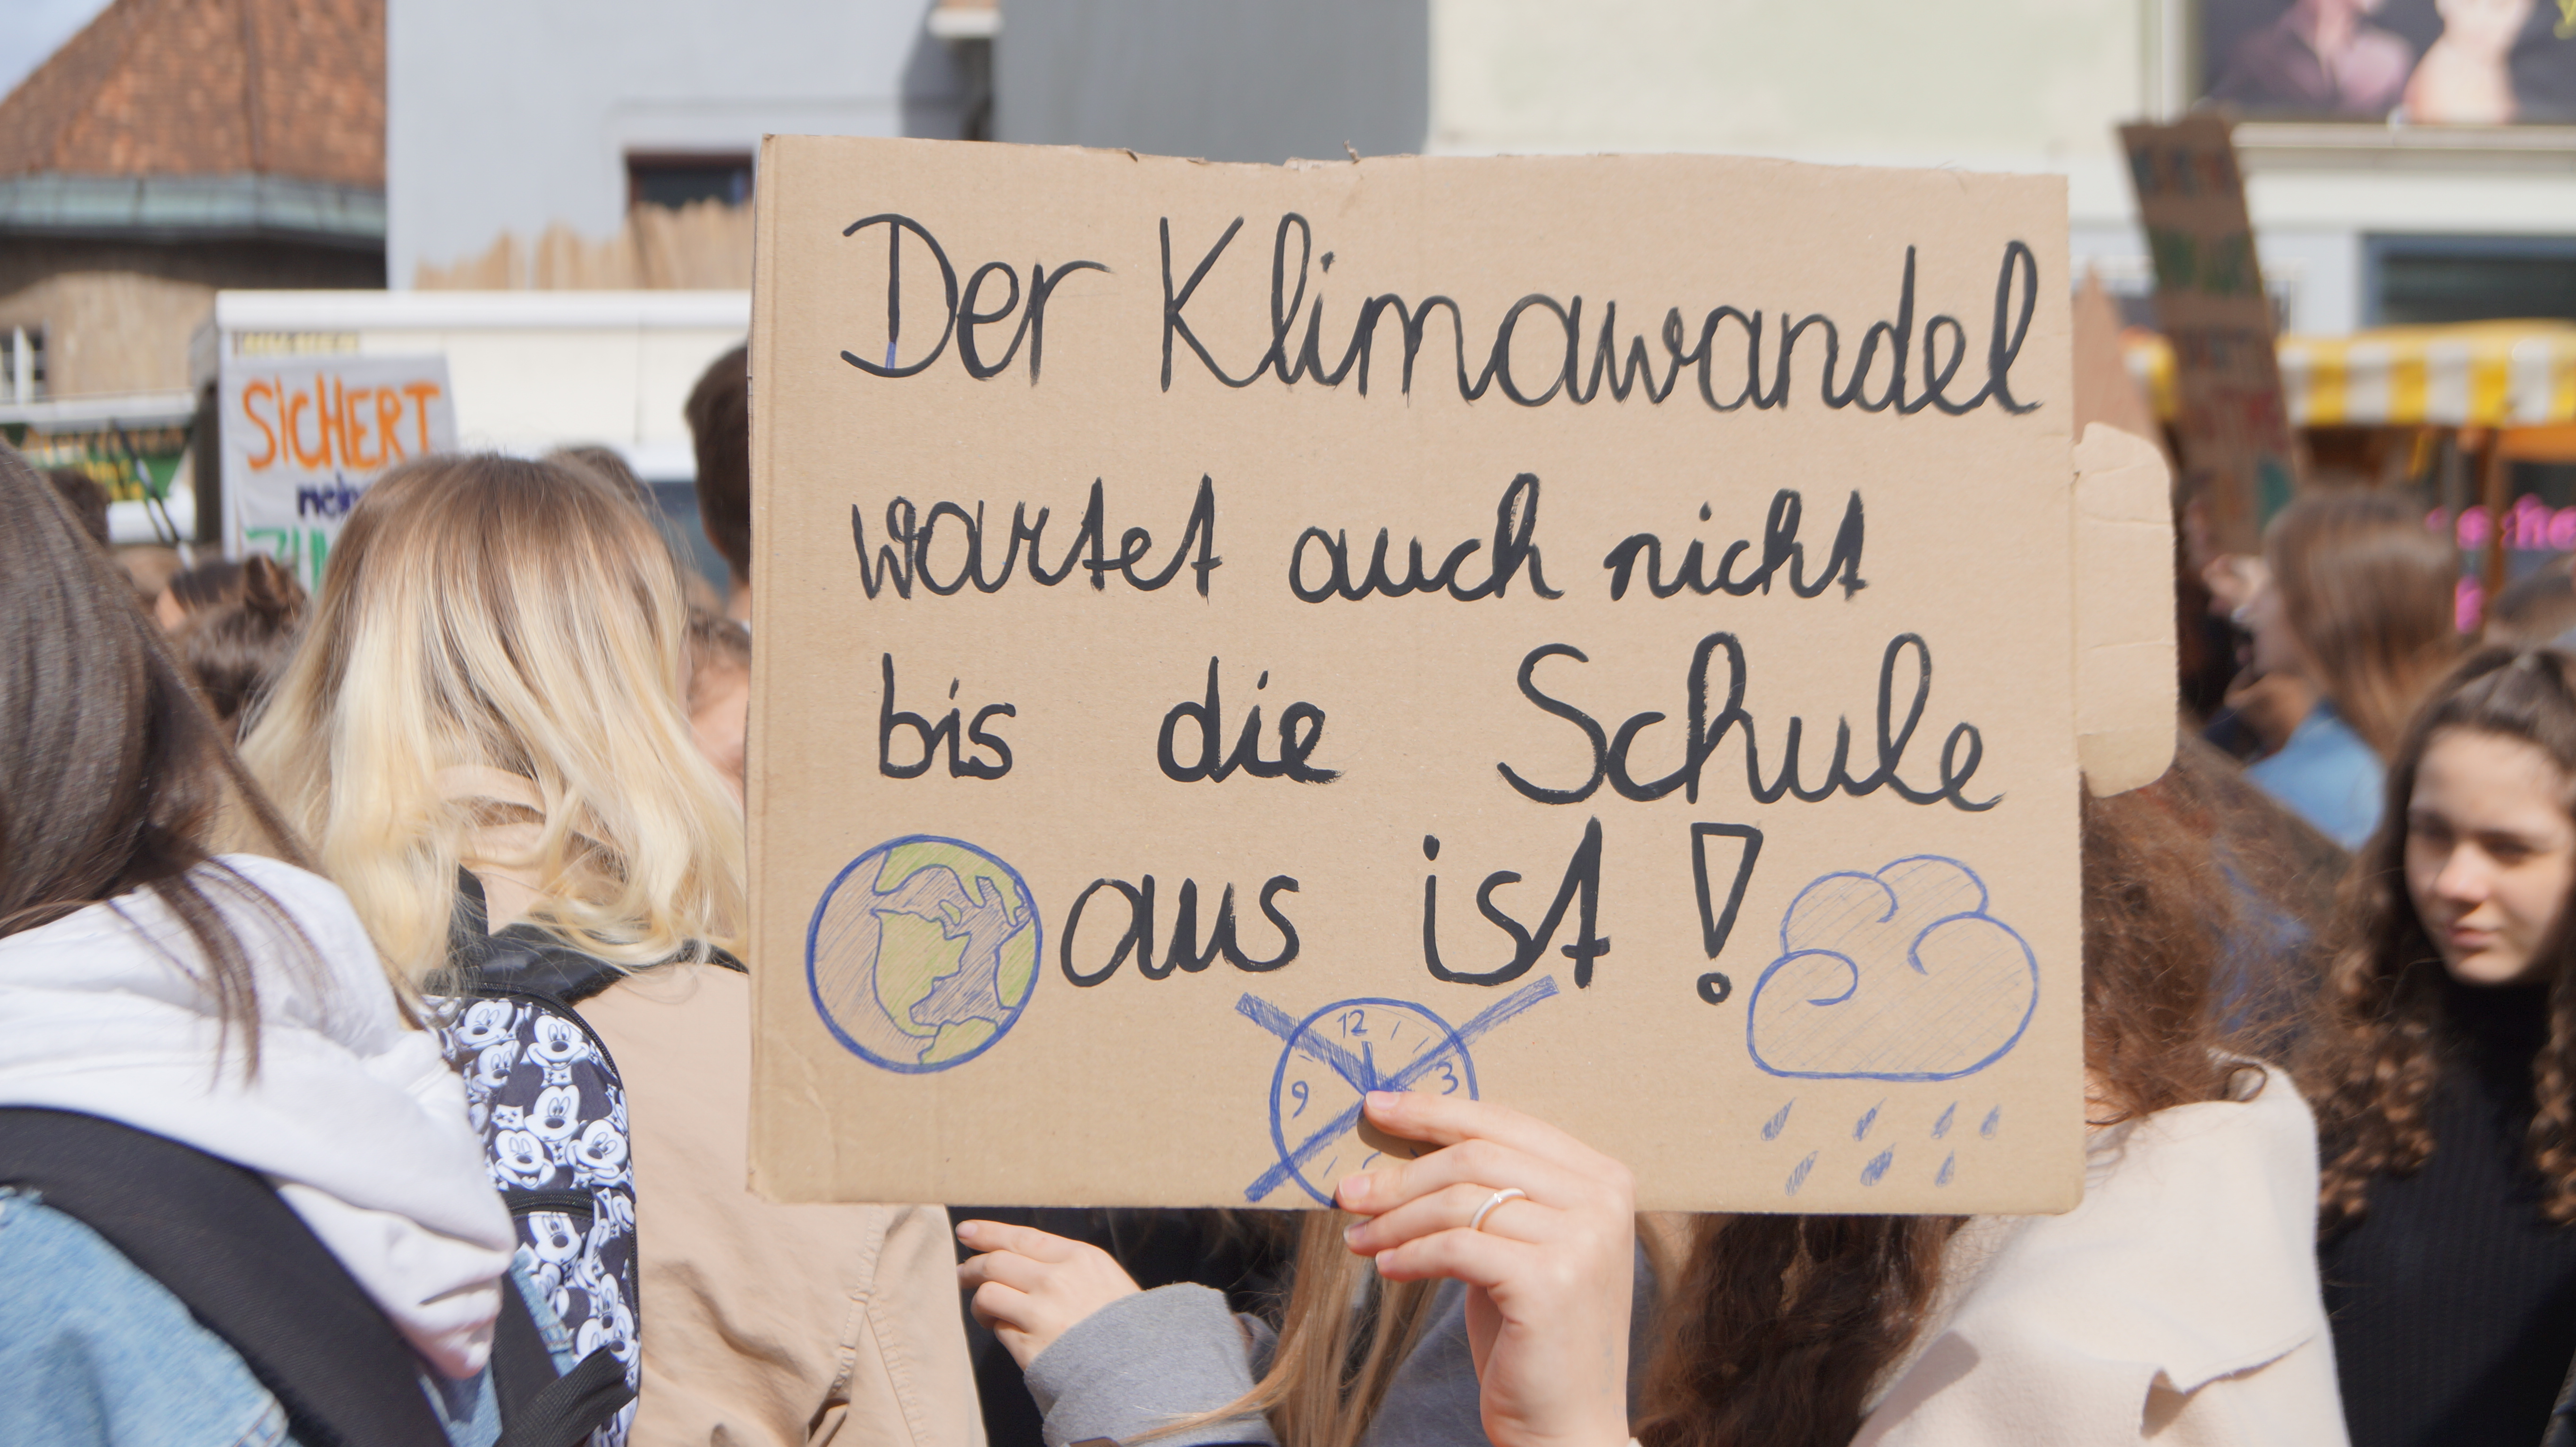 Der Klimawandel
wartet auch nicht
bis die Schule
aus ist!
12
3
9
SiCHERT